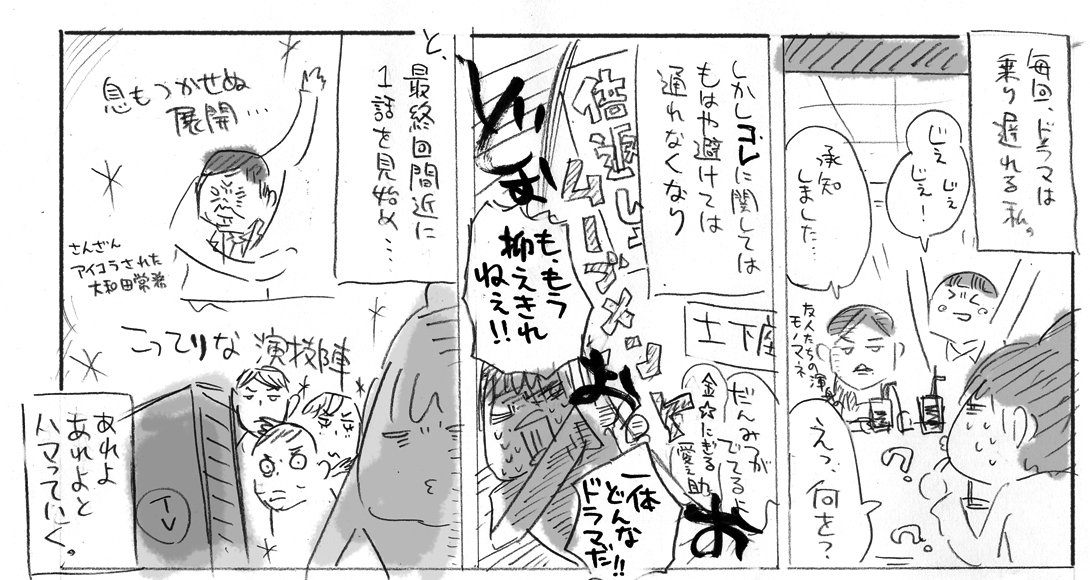 毎回、ドラマは
乗り遅れる私。
じぇじぇ
じぇ!
承知
しました…
友人たちの演
モノマネ
えっ、何を?
しかしコレに関しては
もはや避けては
通れなくなり
倍返し
土下座
だんみつが
でてるよ
金☆にぎる
愛之助
も、もう
抑えきれ
ねぇ!!
一体
どんな
ドラマだ!!
と、
最終回間近に
1話を見始め…
息もつかせぬ
展開…
さんざん
アイコラされた
大和田常務
こってりな 演技陣
TV
あれよ
あれよと
ハマっていく。